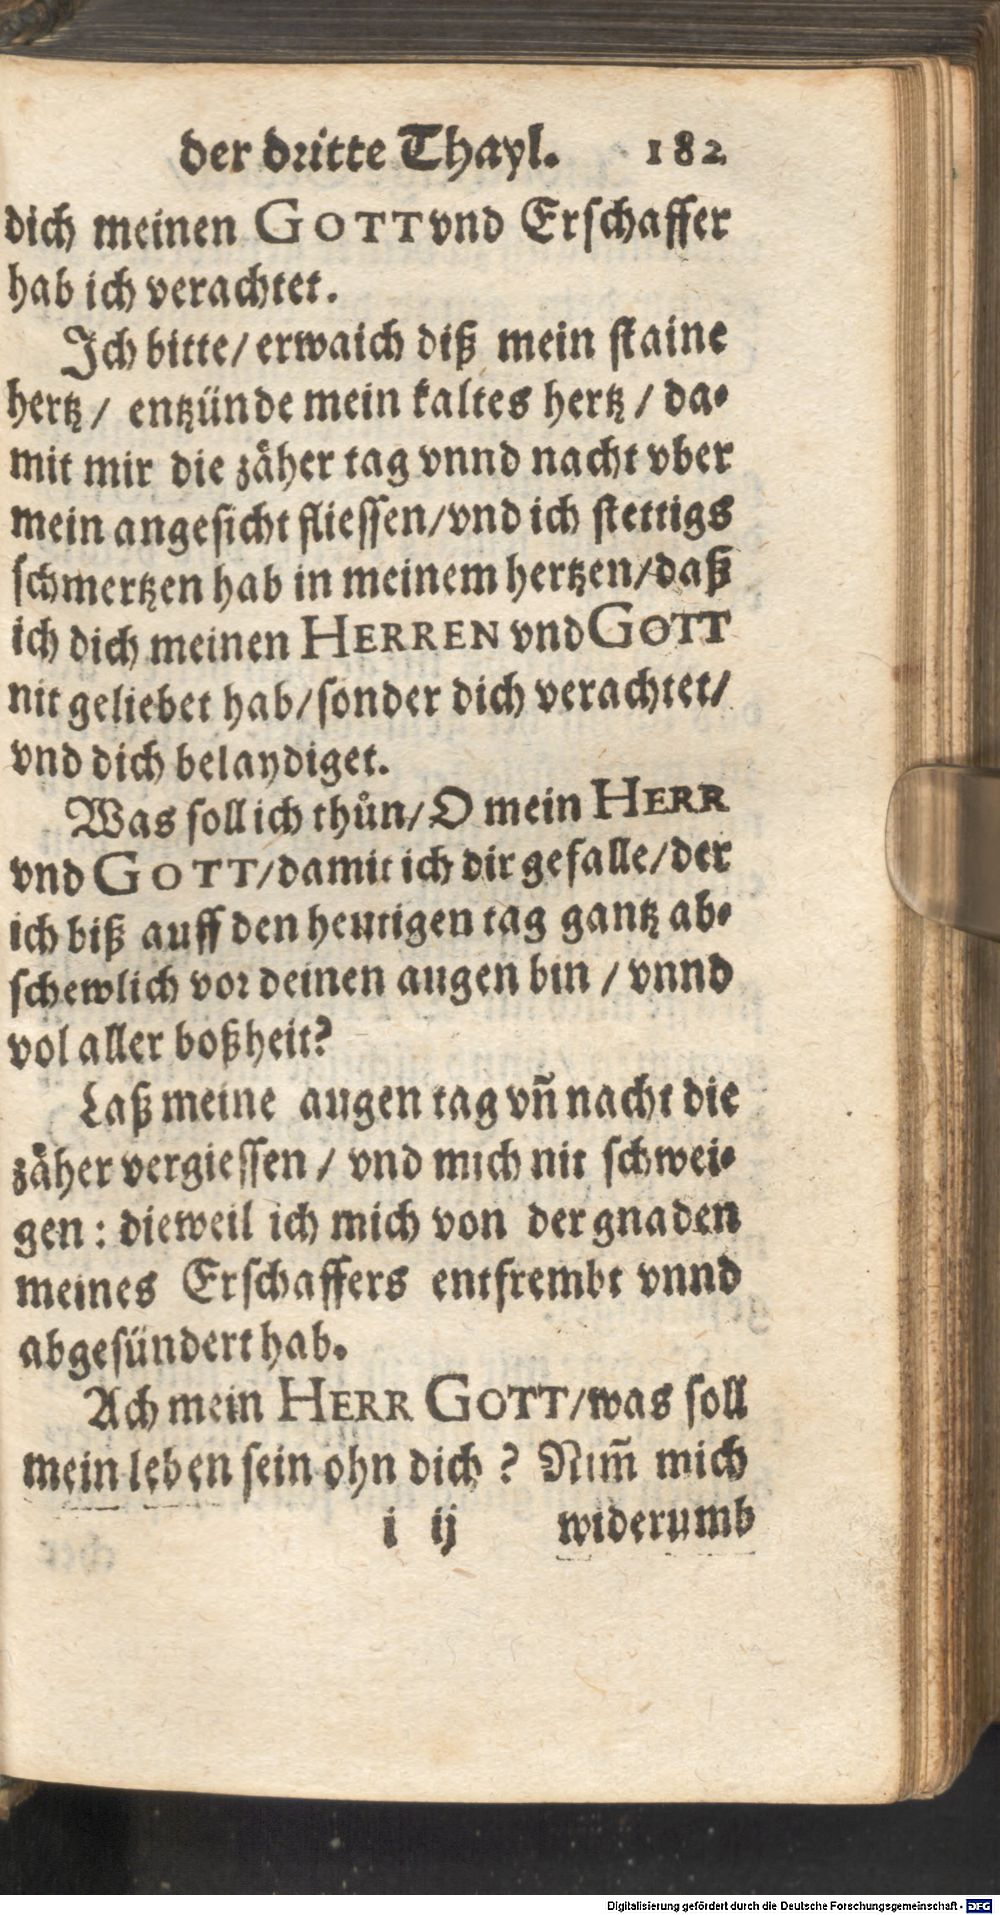 der dritte Thayl. 182
dich meinen GOTT vnd Erschaffer
hab ich verachtet.
Ich bitte/ erwaich diß mein staine
hertz/ entzünde mein kaltes hertz/ da-
mit mir die zäher tag vnnd nacht vber
mein angesicht fliessen/ vnd ich stettigs
schmertzen hab in meinem hertzen/ daß
ich dich meinen HERREN vnd GOTT
nit geliebet hab/ sonder dich verachtet/
vnd dich belaydiget.
Was soll ich thůn/ O mein HERR
vnd GOTT/ damit ich dir gefalle/ der
ich biß auff den heutigen tag gantz ab-
schewlich vor deinen augen bin/ vnnd
vol aller boßheit?
Laß meine augen tag vñ nacht die
zäher vergiessen/ vnd mich nit schwei-
gen: dieweil ich mich von der gnaden
meines Erschaffers entfrembt vnnd
abgesündert hab.
Ach mein HERR GOTT/ was soll
mein leben sein ohn dich? Nim̃ mich
i ij widerumb
Digitalisierung gefördert durch die Deutsche Forschungsgemeinschaft - DFG